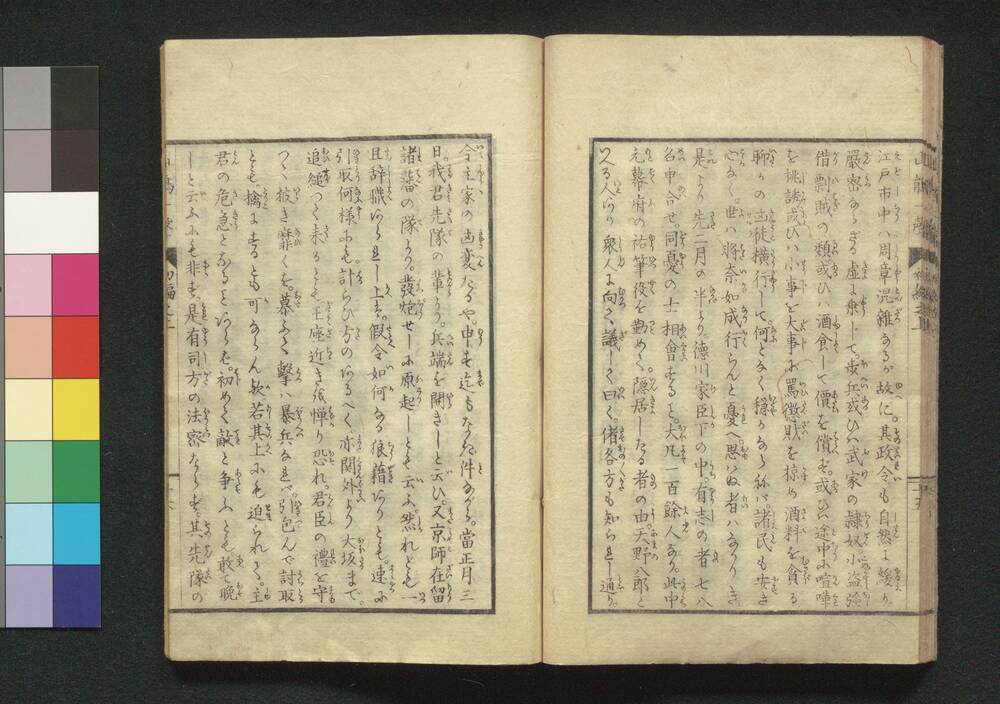 江戸市中ハ周章混雑なるが故に。其政令も自然と緩まり。
嚴密ならざる虚に乗して。歩兵或ひハ武家の隷奴。小盗強
借剽賊の類或ひハ酒食して價を償ず。或ひハ途中に喧嘩
を挑誘或ひハ小事を大事に罵懲財を掠め酒料を貪る
聊かの凶徒横行して。何となく穏かならねバ諸民も安き
心なく。世ハ将奈如成行らんと憂へ思ハぬ者ハなかりき
是より先二月の半より徳川家臣下の中。有志の者七八
名申合せ。同憂の士相會するに。大凡一百餘人なり。此中
元幕府の祐筆役を勤めて。隠居したる者の由。大野八郎と
いへる人あり衆人に向て議して曰く偖各方も知らるゝ通り。
今主家の凶変たるや。申も迄もなき件ながら。當正月三
日。我君先隊の輩より。兵端を開きしと云ひ。又京師在留
諸藩の隊より。發炮せしに原起しとも云ふ。然れども一
且辞職ありし上ハ。假令如何なる狼藉ありとも。速に
引取何様にも計らひ方のあるべく。亦関外より大坂まで。
追縋つて来るとも。王座近きを憚り恐れ。君臣の禮を守
つて披き靡くを。慕ふて撃ハ暴兵なれバ。引包んで討取
とも擒にするとも可ならん歟若其上にも迫られなバ。主
君の危急となるとあらバ。初めて敵と争ふとも敢て晩
しと云ふにも非ず。是有司方の法密ならず。其先隊の